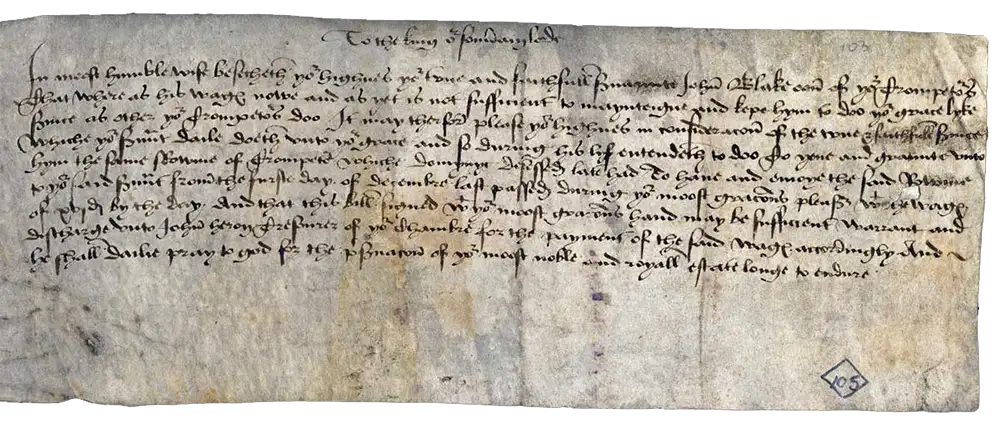 To the king oʳ souv̄ain lorde
In moost humble wise besecheth yoʳ highnes yoʳ true and faithfull s̄uaunte John Blake oon of yoʳ Trompetꝭ
That where as his wagꝭ nowe and as yet is not sufficient to maynteigne and kepe hym to doo yoʳ grace lyke
s̄uice as other yoʳ Trompetꝭ doo It may therfor please yoʳ highnes in consideracon of the true & faithfull s̄uice
whiche yoʳ s̄uaᵗ dailie doeth vnto yoʳ grace and so during his lyf entendeth to doo To yeue and graunte vnto
hym the same Rowme of Trompet whiche domynyc decessed late had To haue and enioye the said Rowme
to yoʳ said s̄uaᵗ from the furst day of decembre last passed during yoʳ moost gracious pleasʳ wᵗ the wagꝭ
of xvjd by the day And that this bill signed wᵗ yoʳ moost gracious hand may be sufficient warrant and
discharge vnto John heron Tresourer of yoʳ Chambre for the payment of the said wagꝭ accordingly And
he shall dailie pray to god for the p̄s̄uacon of yoʳ moost noble and royall estate longe to endure
103
105